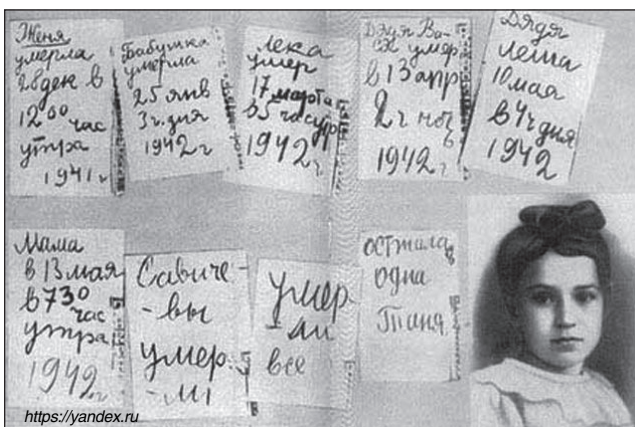 Женя
умерла
28 дек в
12 00 час
утра
1941 г
Бабушка
умерла
25 янв
3 ч. дня
1942 г
Лека
умер
17 марта
в 5 час утр
1942 г
Дядя Ва-
ся умер
в 13 апр
2 ч ноч
1942 г
Дядя
Леша
10 мая
в 4 ч дня
1942
Мама
в 13 мая
в 7 30
час
утра
1942 г
Савиче-
-вы
умер-
-ли
умер
-ли
все
осталась
одна
Таня
https://yandex.ru